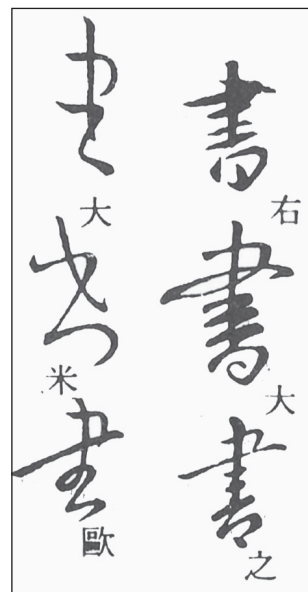 書右書大書之
書大書米書歐